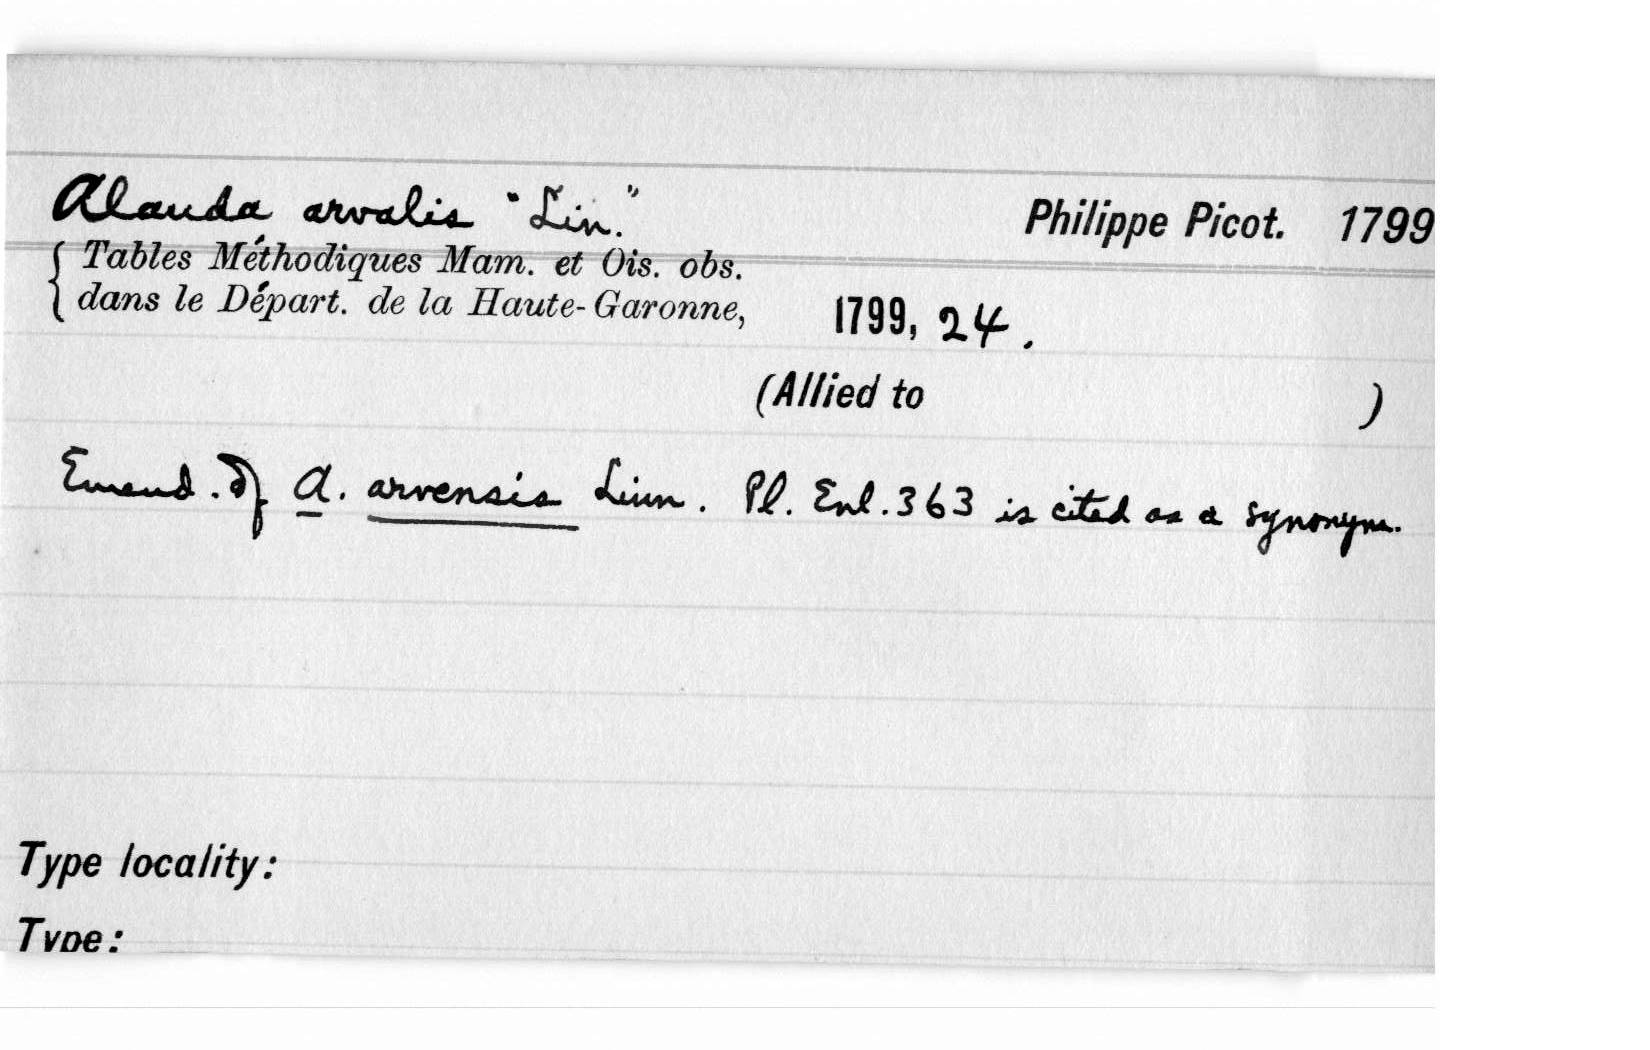 Alauda arvalis "Lin." Philippe Picot. 1799
Tables Méthodiques Mam. et Ois. obs.
dans le Départ. de la Haute-Garonne, 1799, 24.
(Allied to )
Emend. of A. arvensis Linn. Pl. Enl. 363 is cited as a synonym.
Type locality:
Type: